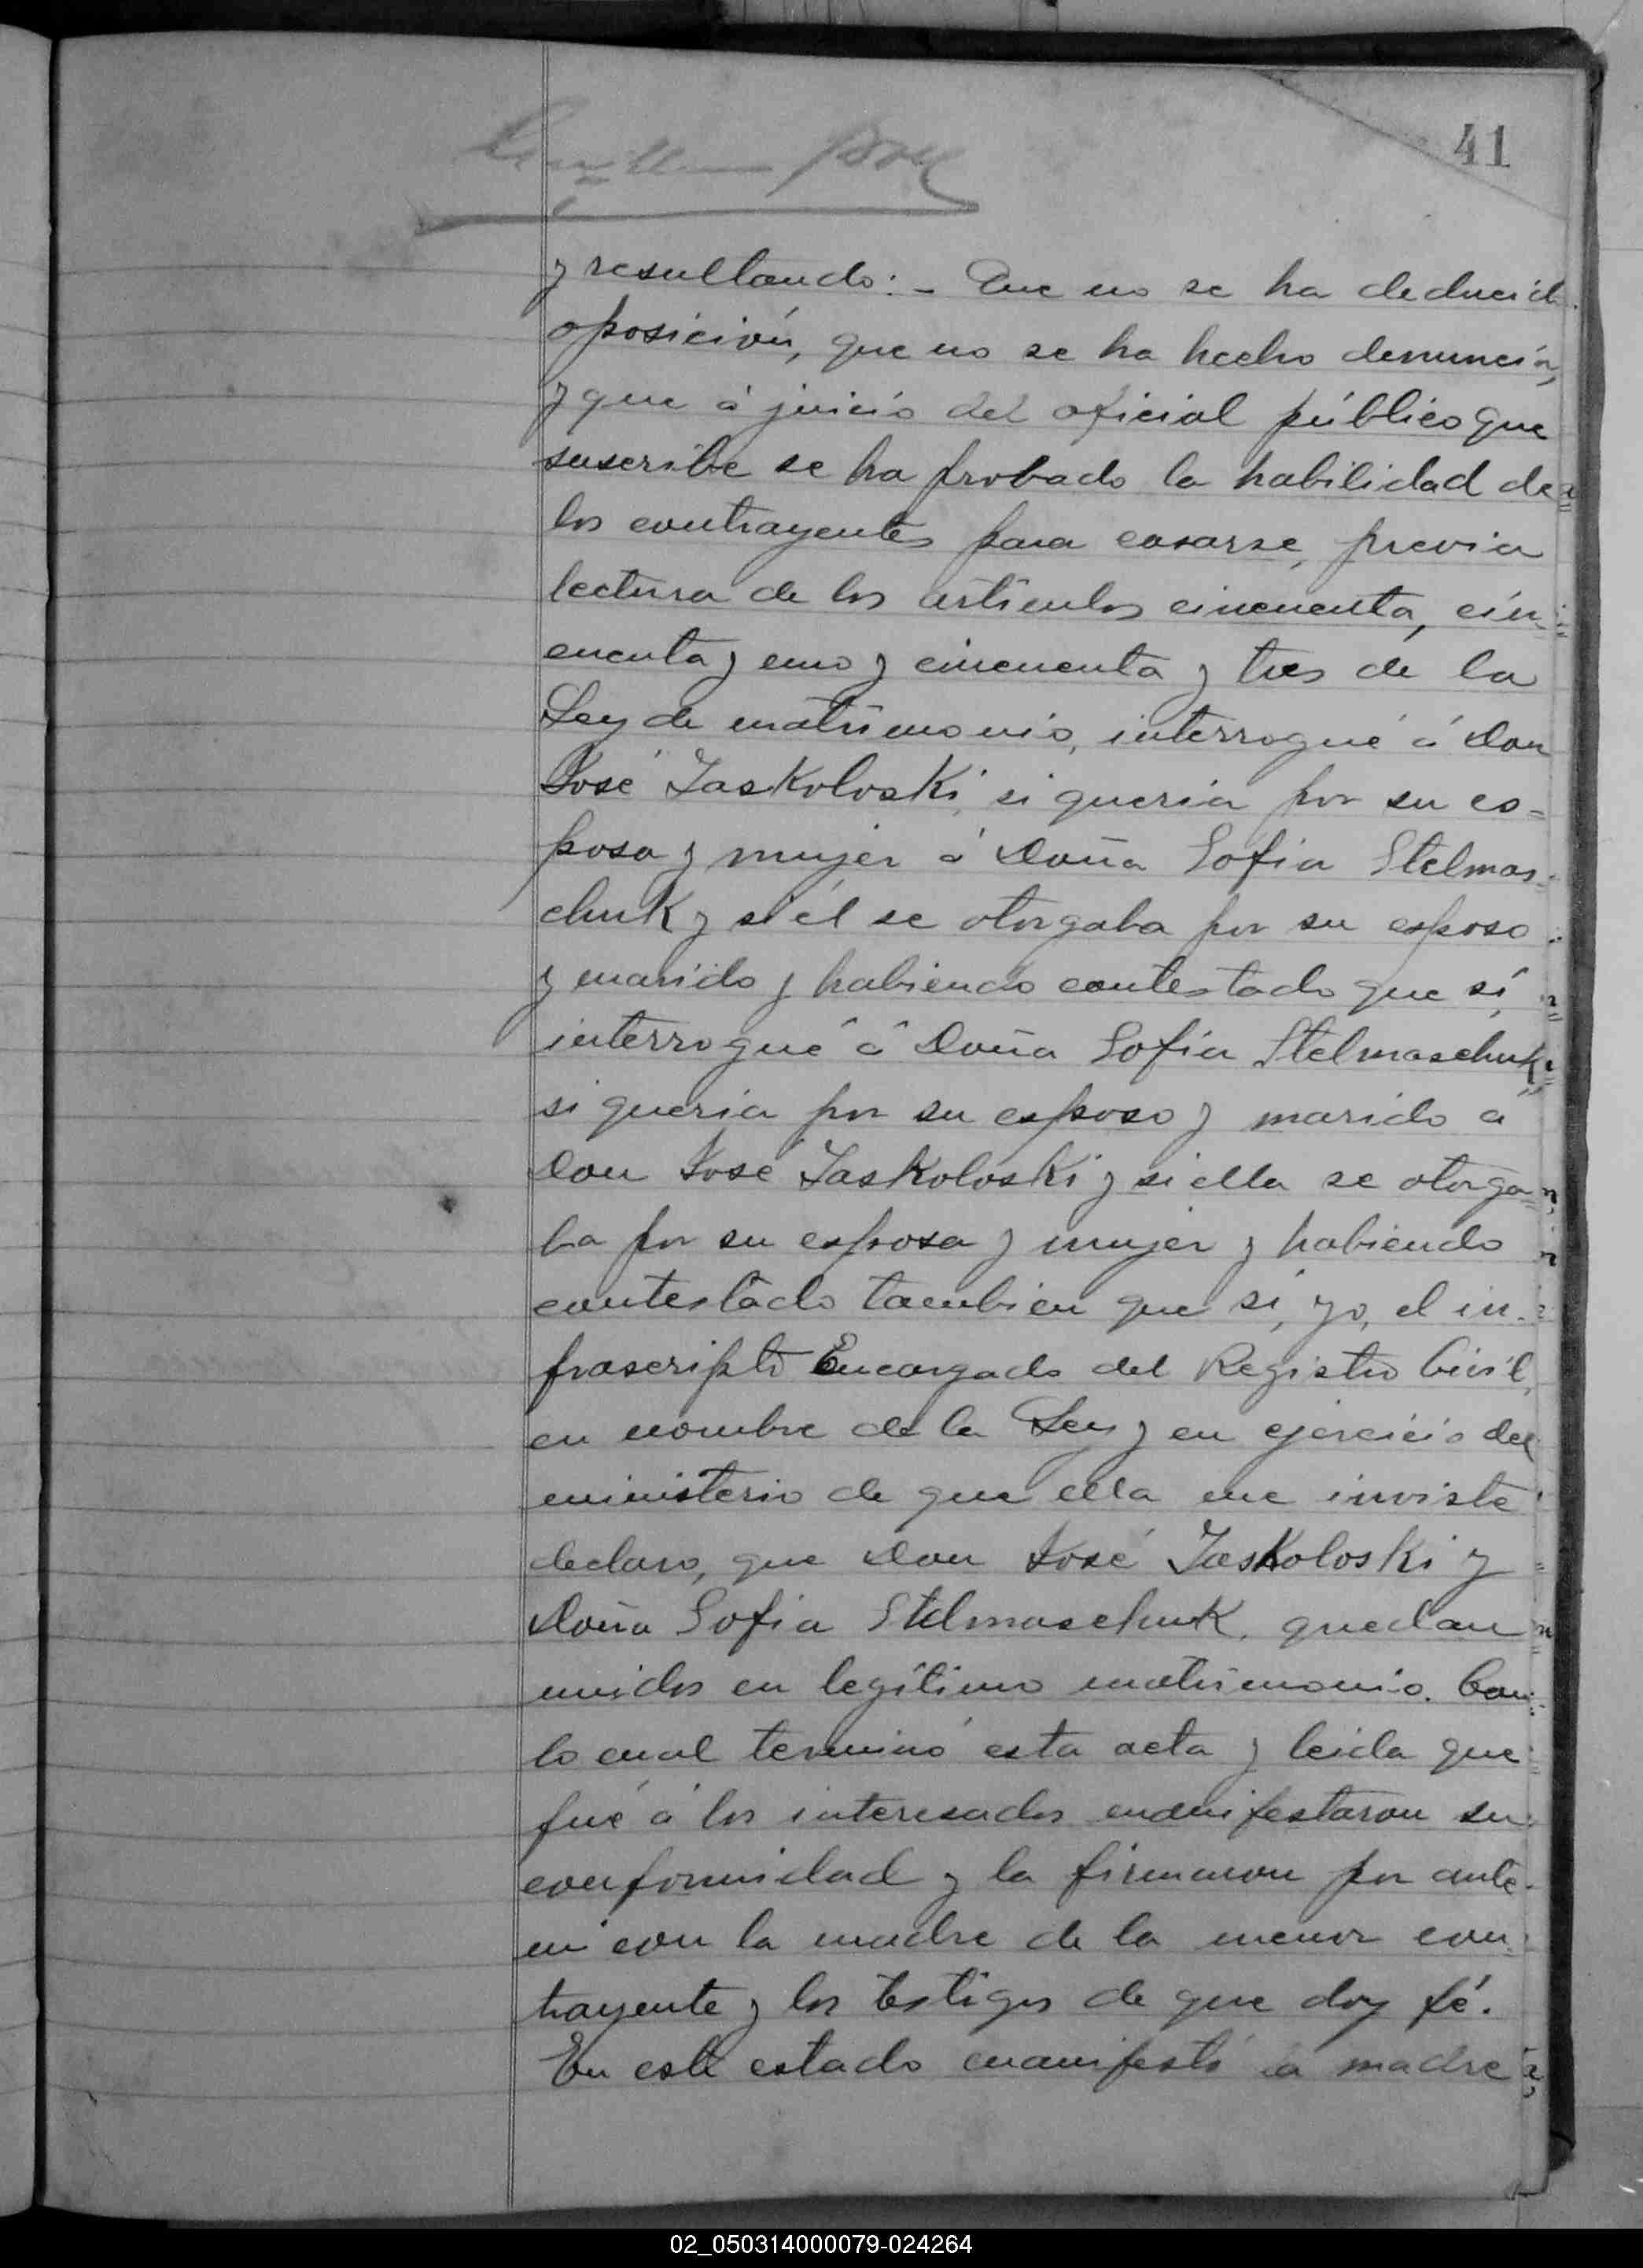 41
y resultando: - Que no se ha deducido
oposición, que no se ha hecho denuncia,
y que á juicio del oficial público que
suscribe se ha probado la habilidad de
los contrayentes para casarse, previa
lectura de los artículos cincuenta, cin-
cuenta y uno y cincuenta y tres de la
Ley de matrimonio, interrogué á Don
José Jaskoloski, si queria por su es=
posa y mujer á Doña Sofia Stelmas-
chuk y si él se otorgaba por su esposo
y marido y habiendo contestado que sí,
interrogué á Doña Sofia Stelmaschuk,
si queria por su esposo y marido a
Don José Jaskoloski y si ella se otorga=
ba por su esposa y mujer y habiendo
contestado tambien que sí, yo, el in-
frascripto Encargado del Registro Civil,
en nombre de la Ley y en ejercicio del
ministerio de que ella me inviste
declaro, que Don José Jaskoloski y
Doña Sofia Stelmaschuk, quedan
unidos en legítimo matrimonio. Con
lo cual terminó esta acta y leida que
fué á los interesados manifestaron su
conformidad y la firmaron por ante
mi con la madre de la menor con-
trayente y los testigos de que doy fé.
En este estado manifestó la madre
02_050314000079-024264